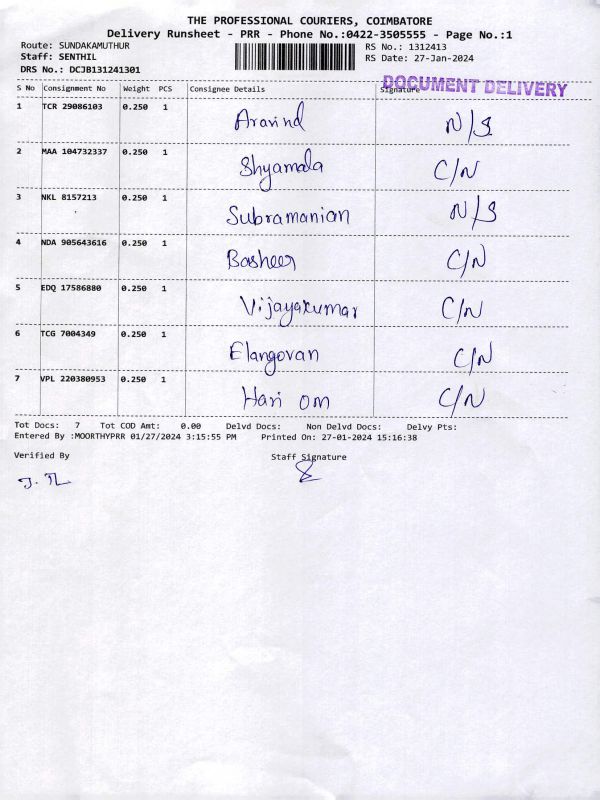 THE PROFESSIONAL COURIERS, COIMBATORE
Delivery Runsheet - PRR - Phone No.:0422-3505555 - Page No.:1
Route: SUNDAKAMUTHUR
Staff: SENTHIL
DRS No.: DCJB131241301
RS No.: 1312413
RS Date: 27-Jan-2024
DOCUMENT DELIVERY
S No Consignment No Weight PCS Consignee Details Signature
1 TCR 29086103 0.250 1 Aravind N/S
2 MAA 104732337 0.250 1 Shyamala C/N
3 NKL 8157213 0.250 1 Subramanian N/S
4 NDA 905643616 0.250 1 Basheer C/N
5 EDQ 17586880 0.250 1 Vijayakumar C/N
6 TCG 7004349 0.250 1 Elangovan C/N
7 VPL 220380953 0.250 1 Hari om C/N
Tot Docs: 7 Tot COD Amt: 0.00 Delvd Docs: Non Delvd Docs: Delvy Pts:
Entered By :MOORTHYPRR 01/27/2024 3:15:55 PM Printed On: 27-01-2024 15:16:38
Verified By Staff Signature